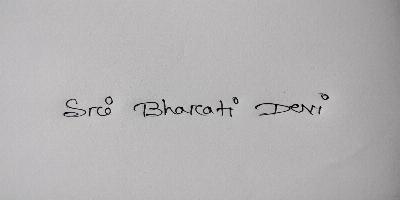 Sri Bharati Devi